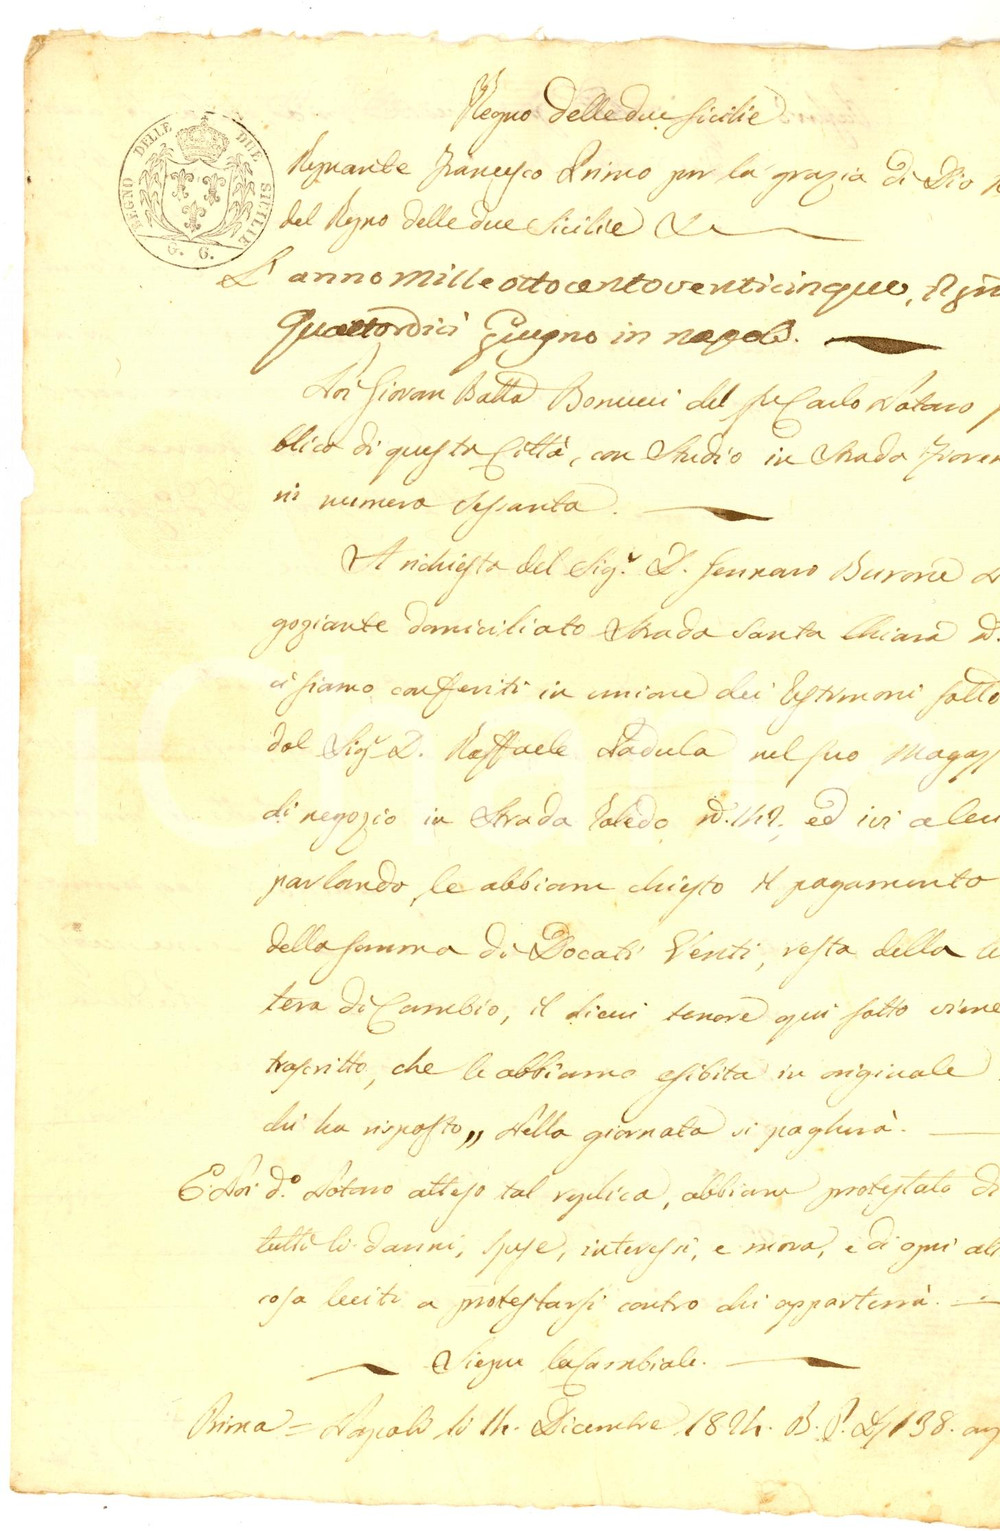 Regno delle due Sicilie
REGNO DELLE DUE SICILIE
G. G.
Regnante Francesco Primo per la grazia di Dio R
del Regno delle due Sicilie &
L'anno mille ottocento venticinque, il gn
Quattordici Giugno in napoli.
Noi Giovan Batta Bonucci del fu Carlo Notaro p
blico di questa Città, con Studio in Strada Fioren
ni numero Sessanta.
A richiesta del Sig.r D. Gennaro Burone
goziante domiciliato Strada Santa Chiara n.
ci siamo conferiti in unione dei Testimoni sotto
dal Sig.r D. Raffaele Padula nel suo Magazz
di negozio in Strada Toledo n. 142, ed ivi a lui
parlando, le abbiam chiesto il pagamento
della somma di Docati Venti, resta della le
tera di Cambio, il di cui tenore qui sotto viene
trascritto, che le abbiamo esibita in originale
chi ha risposto,, Nella giornata si pagherà.
E Noi d.o Notaro atteso tal replica, abbiam protestato di
tutti li danni, spese, interessi, e mora, e di ogni alt
cosa lecita a protestarsi contro chi apparterrà.
Siegue la Cambiale.
Prima = Napoli li 14. Dicembre 1824. B. P. D 138.